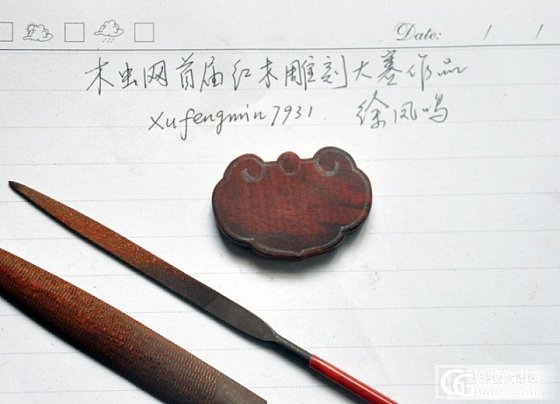 Date: / /
木虫网首届红木雕刻大赛作品
xufengmin7931 徐凤鸣